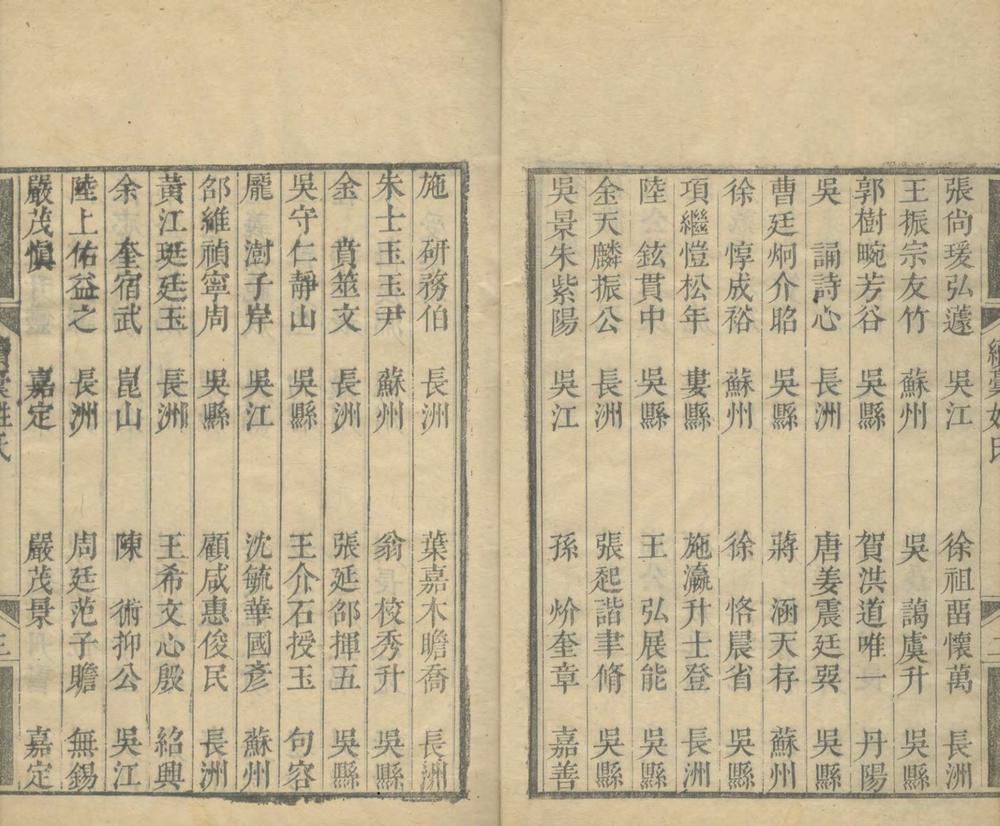 張尙瑗弘蘧　吳江　徐祖畱懷萬　長洲
王振宗友竹　蘇州　吳　藹虞升　吳縣
郭樹畹芳谷　吳縣　賀洪道唯一　丹陽
吳　誦詩心　長洲　唐姜震廷巽　吳縣
曹廷炯介昭　吳縣　蔣　涵天存　蘇州
徐　惇成裕　蘇州　徐　恪晨省　吳縣
項繼愷松年　婁縣　施瀛升士登　長洲
陸　鉉貫中　吳縣　王　弘展能　吳縣
金天麟振公　長洲　張起諧聿脩　吳縣
吳景朱紫陽　吳江　孫　炌奎章　嘉善
施　硏務伯　長洲　葉嘉木瞻喬　長洲
朱士玉玉尹　蘇州　翁　校秀升　吳縣
金　賁筮文　長洲　張延邵揮五　吳縣
吳守仁靜山　吳縣　王介石授玉　句容
龐　澍子岸　吳江　沈毓華國彥　蘇州
邵維禎寧周　吳縣　顧咸惠俊民　長洲
黃江珽廷玉　長洲　王希文心殷　紹興
余　奎宿武　崑山　陳　術抑公　吳江
陸上佑益之　長洲　周廷范子瞻　無錫
嚴茂愼　嘉定　嚴茂景　嘉定
姓氏